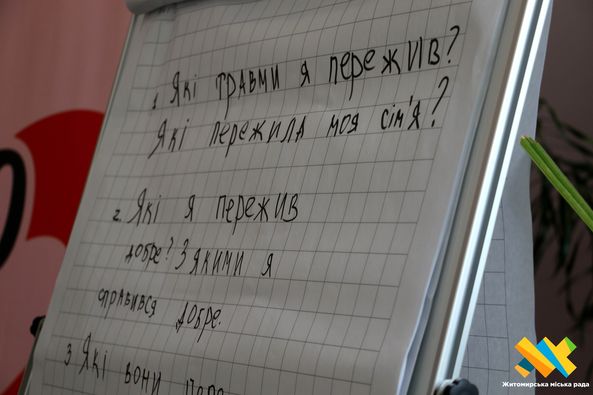 1. Які травми я пережив?
Які пережила моя сім'я?
2. Які я пережив
добре? З якими я
справився добре.
3 Які вони пере
Житомирська міська рада